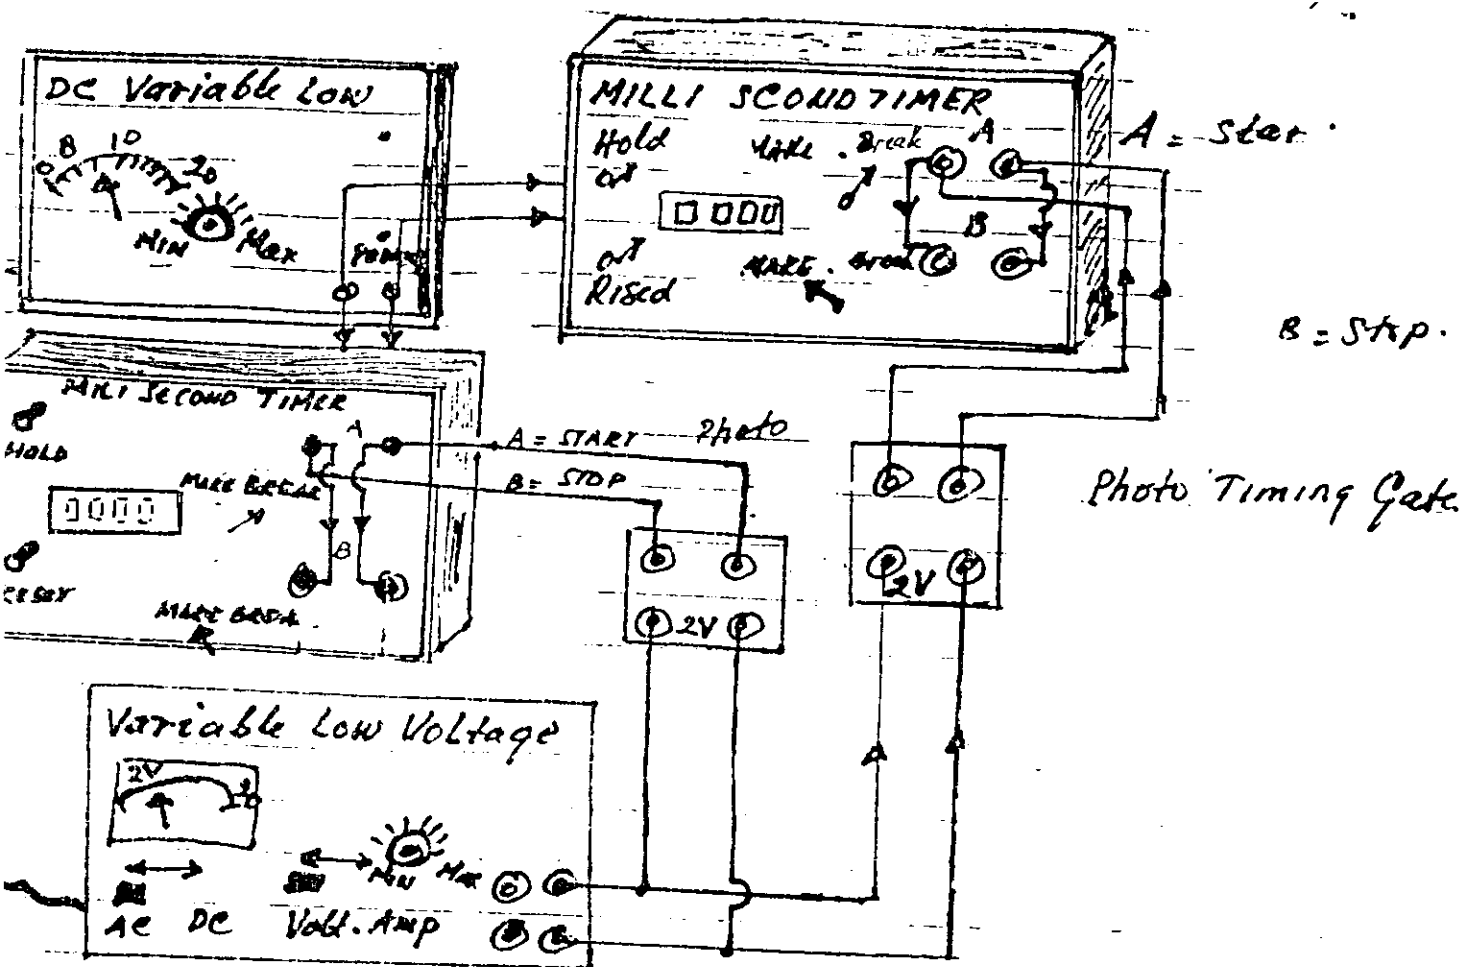 DC Variable Low
0 8 10 20
MIN Max
MILLI SCOND TIMER
Hold
MAKE . Break A
0 000
B
MAKE . Break
Rised
A = Star .
B = Stop .
MILI SECOND TIMER
HOLD
A
MAKE BREAK
0000
B
MAKE BREAK
A = START
B = STOP
Photo
2V
2V
Photo Timing Gate
Variable Low Voltage
2V
MIN Max
AC DC Volt. Amp